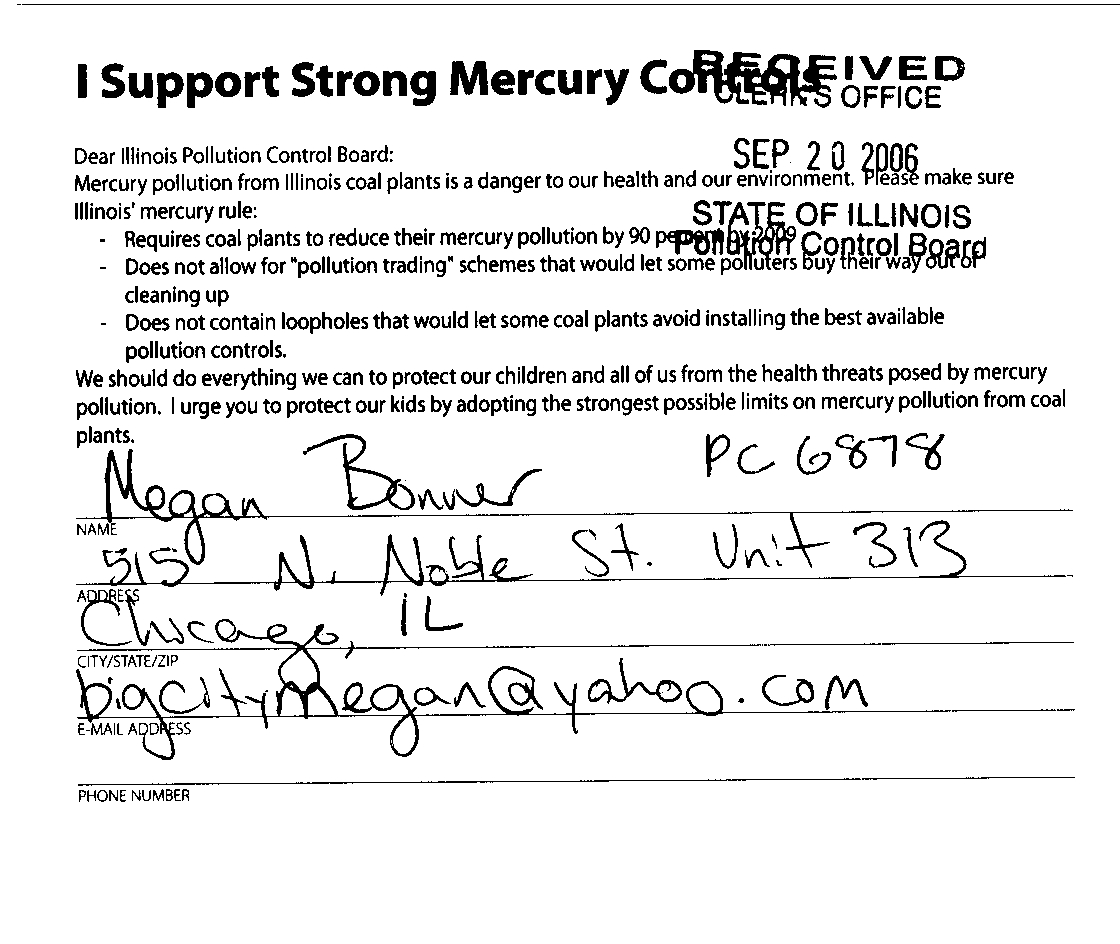 I Support Strong Mercury Controls
RECEIVED
CLERK'S OFFICE
SEP 20 2006
STATE OF ILLINOIS
Pollution Control Board
Dear Illinois Pollution Control Board:
Mercury pollution from Illinois coal plants is a danger to our health and our environment. Please make sure
Illinois' mercury rule:
- Requires coal plants to reduce their mercury pollution by 90 percent by 2009
- Does not allow for "pollution trading" schemes that would let some polluters buy their way out of
cleaning up
- Does not contain loopholes that would let some coal plants avoid installing the best available
pollution controls.
We should do everything we can to protect our children and all of us from the health threats posed by mercury
pollution. I urge you to protect our kids by adopting the strongest possible limits on mercury pollution from coal
plants.
PC 6878
Megan Bonner
NAME
515 N. Noble St. Unit 313
ADDRESS
Chicago, IL
CITY/STATE/ZIP
bigcitymegan@yahoo.com
E-MAIL ADDRESS
PHONE NUMBER